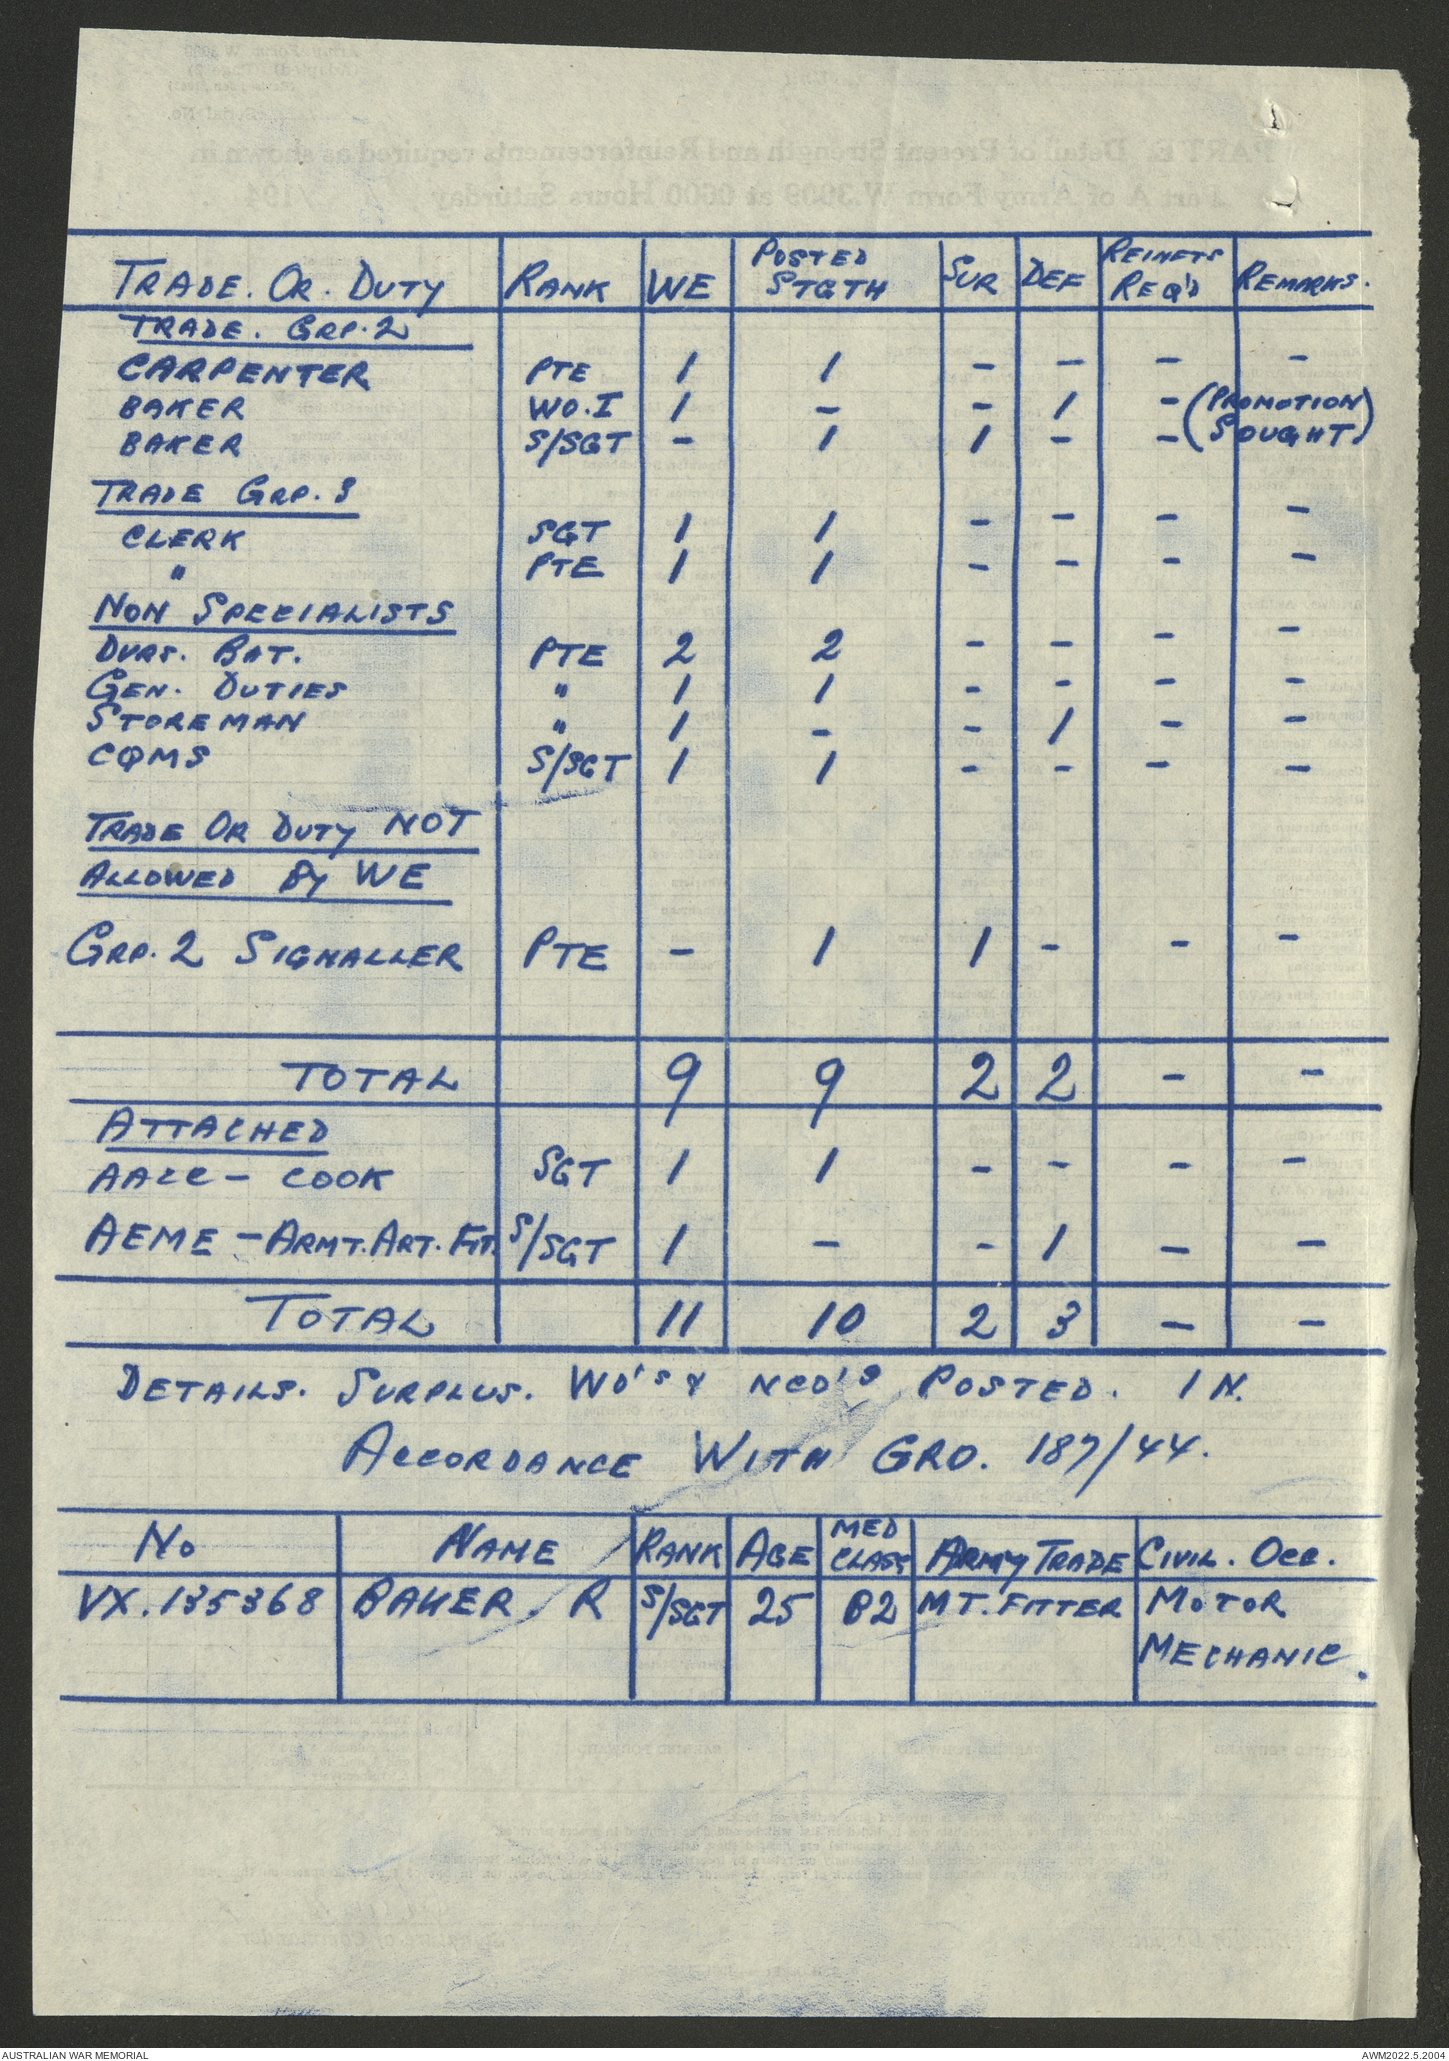 TRADE. OR. DUTY RANK WE POSTED STGTH SUR DEF REINFTS REQ'D REMARKS.
TRADE. GRP. 2
CARPENTER PTE 1 1 - - - -
BAKER WO.I 1 - - 1 - (PROMOTION
BAKER S/SGT - 1 1 - - SOUGHT)
TRADE GRP. 3
CLERK SGT 1 1 - - - -
" PTE 1 1 - - - -
NON SPECIALISTS
DVRS. BAT. PTE 2 2 - - - -
GEN. DUTIES " 1 1 - - - -
STOREMAN " 1 - - 1 - -
CQMS S/SGT 1 1 - - - -
TRADE OR DUTY NOT
ALLOWED BY WE
GRP. 2 SIGNALLER PTE - 1 1 - - -
TOTAL 9 9 2 2 - -
ATTACHED
AACC - COOK SGT 1 1 - - - -
AEME - ARMT. ART. FIT. S/SGT 1 - - 1 - -
TOTAL 11 10 2 3 - -
DETAILS. SURPLUS. WO's & NCO's POSTED. IN.
ACCORDANCE WITH GRO. 187/44.
No NAME RANK AGE MED CLASS ARMY TRADE CIVIL. OCC.
VX.135368 BAKER R S/SGT 25 B2 MT. FITTER MOTOR
MECHANIC.
AUSTRALIAN WAR MEMORIAL AWM2022.5.2004